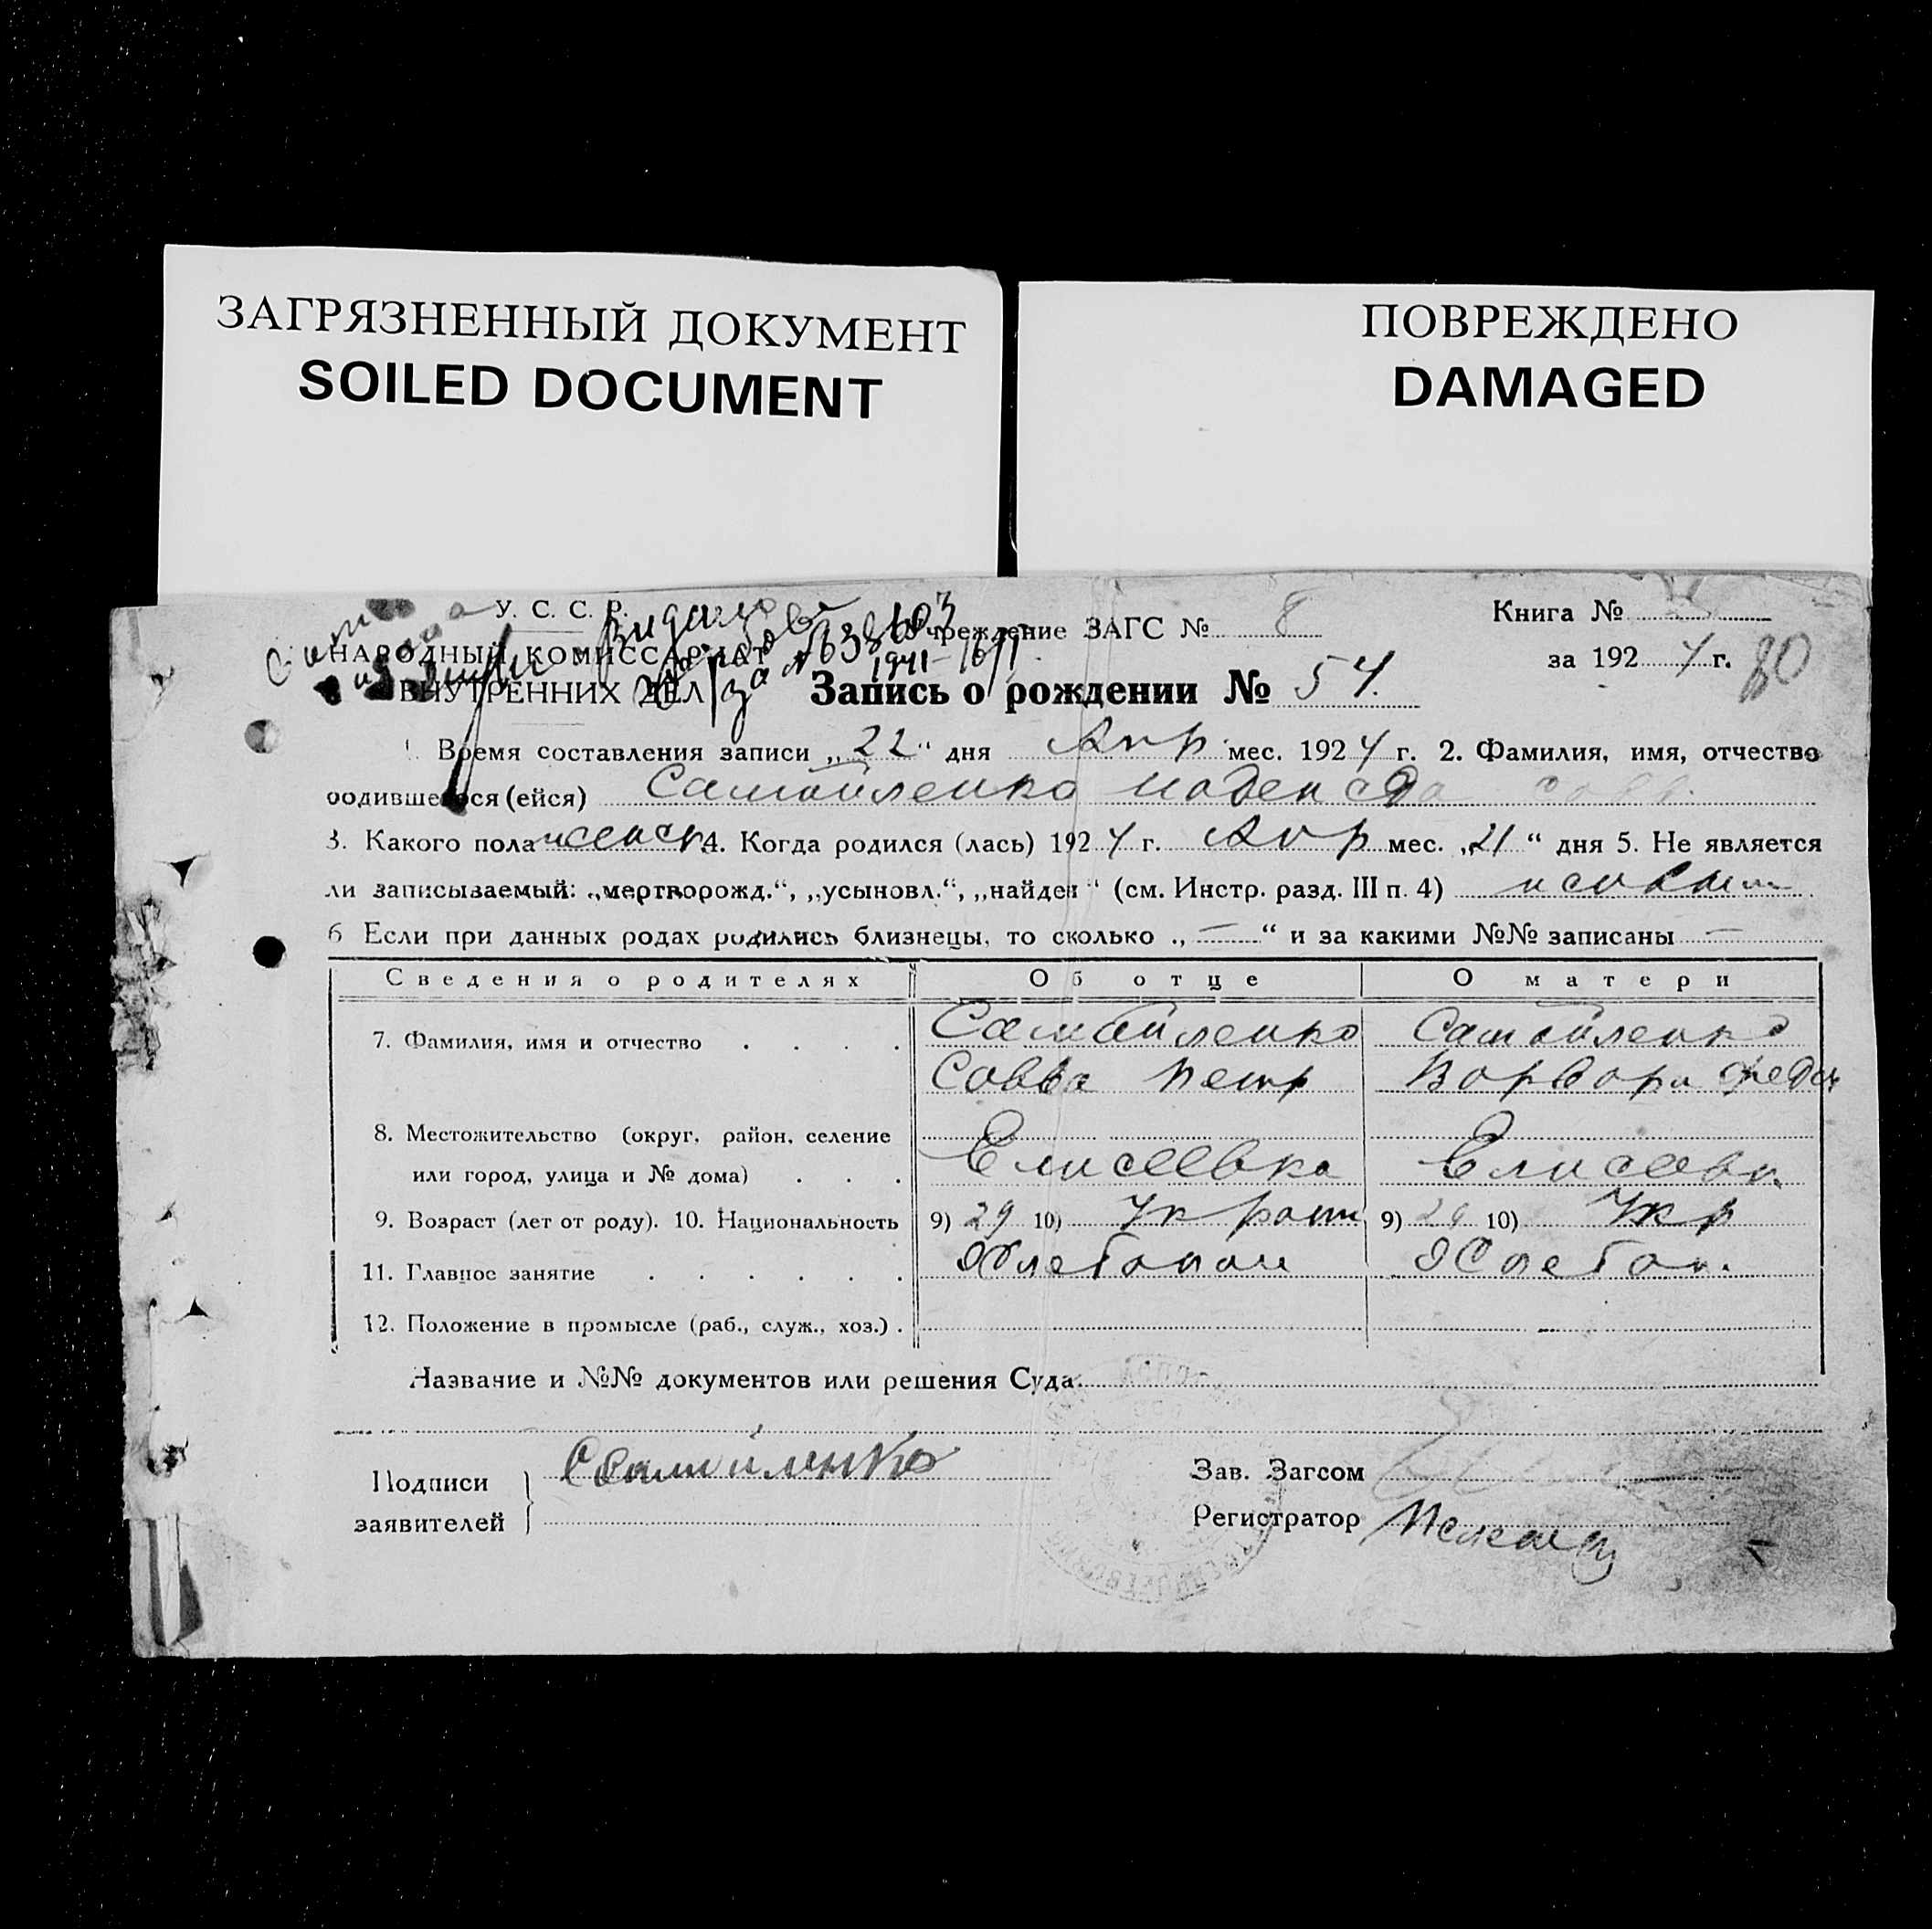 ЗАГРЯЗНЕННЫЙ ДОКУМЕНТ
SOILED DOCUMENT
ПОВРЕЖДЕНО
DAMAGED
У. С. С. Р.
НАРОДНЫЙ КОМИССАРИАТ
ВНУТРЕННИХ ДЕЛ
Учреждение ЗАГС № 8
Книга №
за 1924 г. 80
1941 16/I
Запись о рождении № 54.
Время составления записи „22“ дня Апр. мес. 1924 г. 2. Фамилия, имя, отчество
родившегося (ейся) Самойленко Надежда Савв.
3. Какого пола женск 4. Когда родился (лась) 1924 г. Апр мес. „21“ дня 5. Не является
ли записываемый: „мертворожд.“, „усыновл.“, „найден“ (см. Инстр. разд. III п. 4)
6 Если при данных родах родились близнецы, то сколько „—“ и за какими №№ записаны —
Сведения о родителях Об отце О матери
7. Фамилия, имя и отчество . . . . Самойленко Самойленко
Савва Петр Варвара Федор
8. Местожительство (округ, район, селение
или город, улица и № дома) . . . Елисеевка Елисеевк.
9. Возраст (лет от роду). 10. Национальность 9) 29 10) Украин 9) 29 10) Укр
11. Главное занятие . . . . . . Хлебопаш Хлебоп.
12. Положение в промысле (раб., служ., хоз.) .
Название и №№ документов или решения Суда
Подписи заявителей } Самойленко
Зав. Загсом
Регистратор